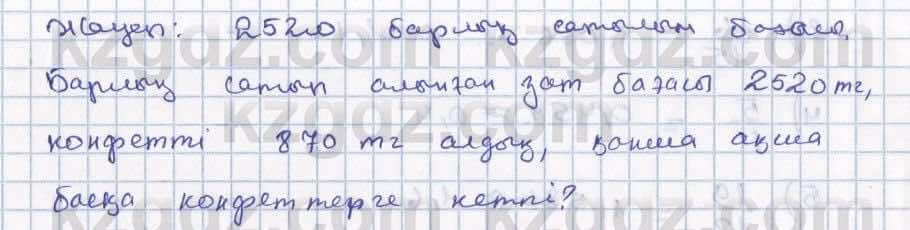 Жауап: 2520 барлық сатылым бағасы.
Барлық сатып алынған зат бағасы 2520 тг,
конфетті 870 тг алдық, қанша ақша
басқа конфеттерге кетті?